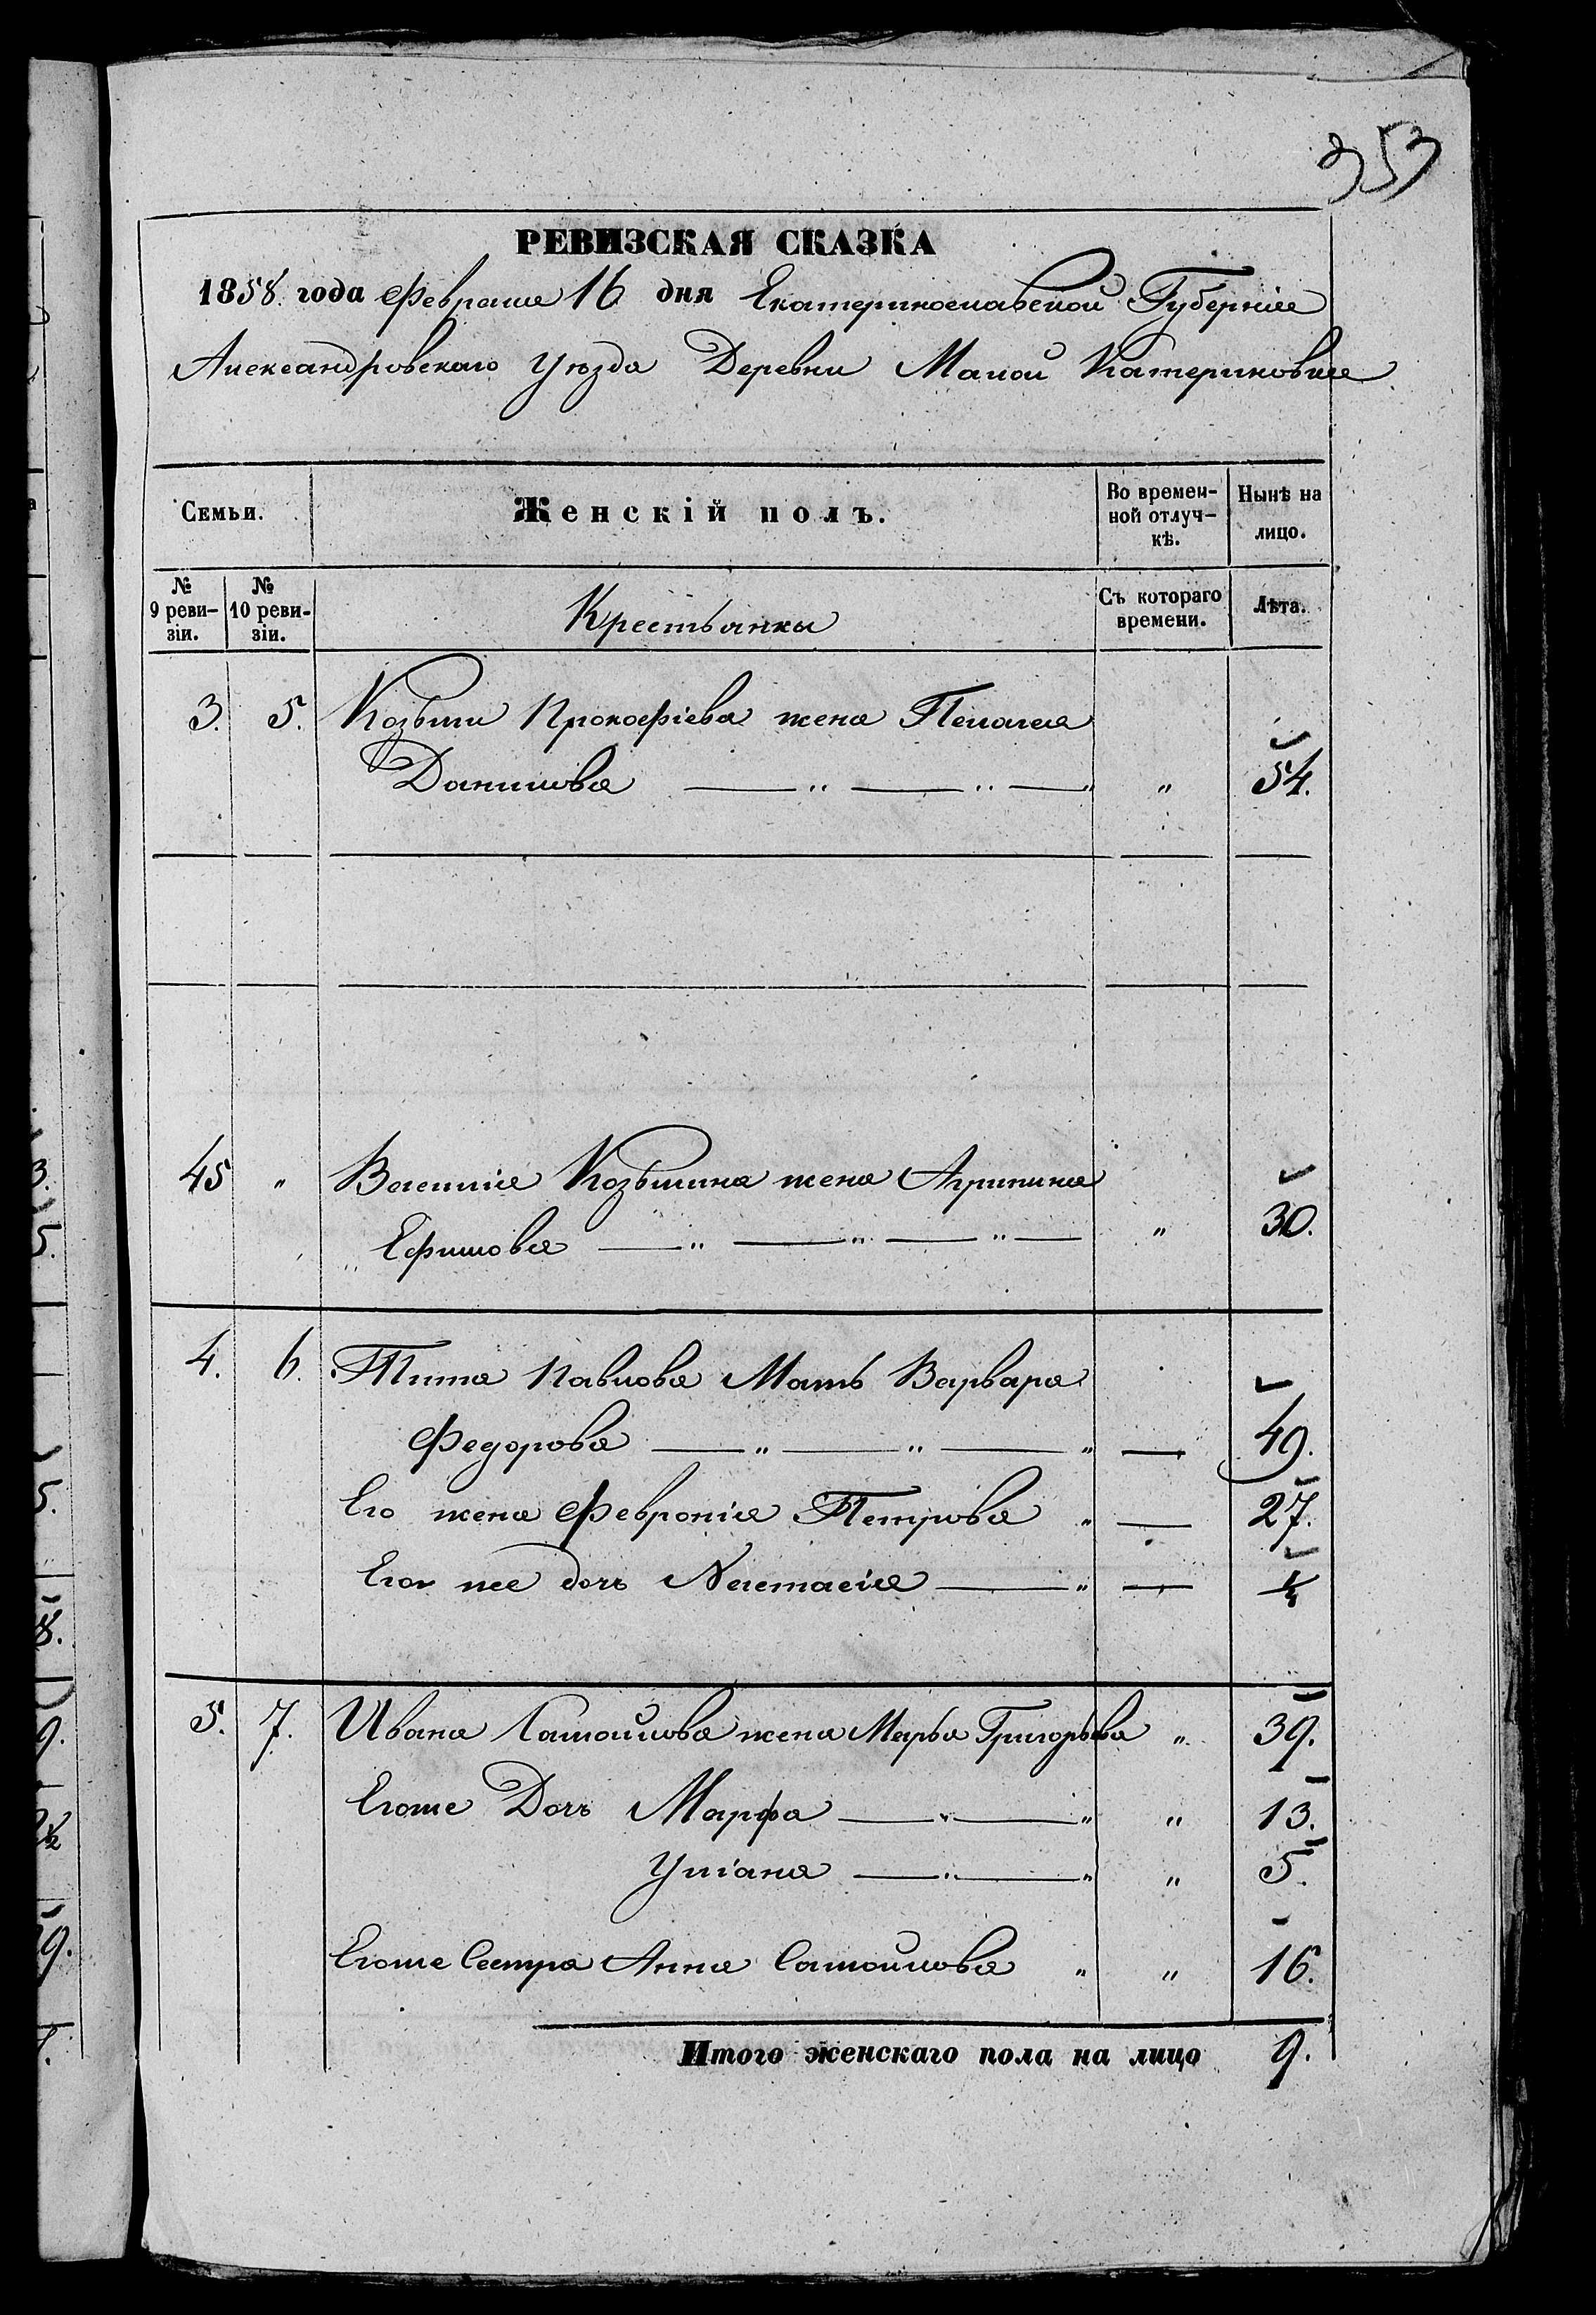 353
РЕВИЗСКАЯ СКАЗКА
1858 года Февраля 16 дня Екатеринославской Губерніи
Александровскаго Уѣзда Деревни Малой Катериновки
Семьи. Женскій полъ. Во времен-ной отлуч-кѣ. Нынѣ на лицо.
№ 9 реви-зіи. № 10 реви-зіи. Крестьянки Съ котораго времени. Лѣта.
3. 5. Козьмы Прокофіева жена Пелагея
Данилова — " — " — " " 54.
45 " Василія Козьмина жена Агрипина
Ефимова — " — " — " — " 30.
4. 6. Тита Павлова Мать Варвара
Федорова — " — " — " — 49.
Его жена Февронія Петрова " — 27.
Его же дочь Настасія — " —
5. 7. Ивана Самойлова жена Марья Григорьева " 39.
Егоже Дочь Марфа — " — " " 13.
Уліана — " — " " 5.
Егоже Сестра Анна Самойлова " " 16.
Итого женскаго пола на лицо 9.